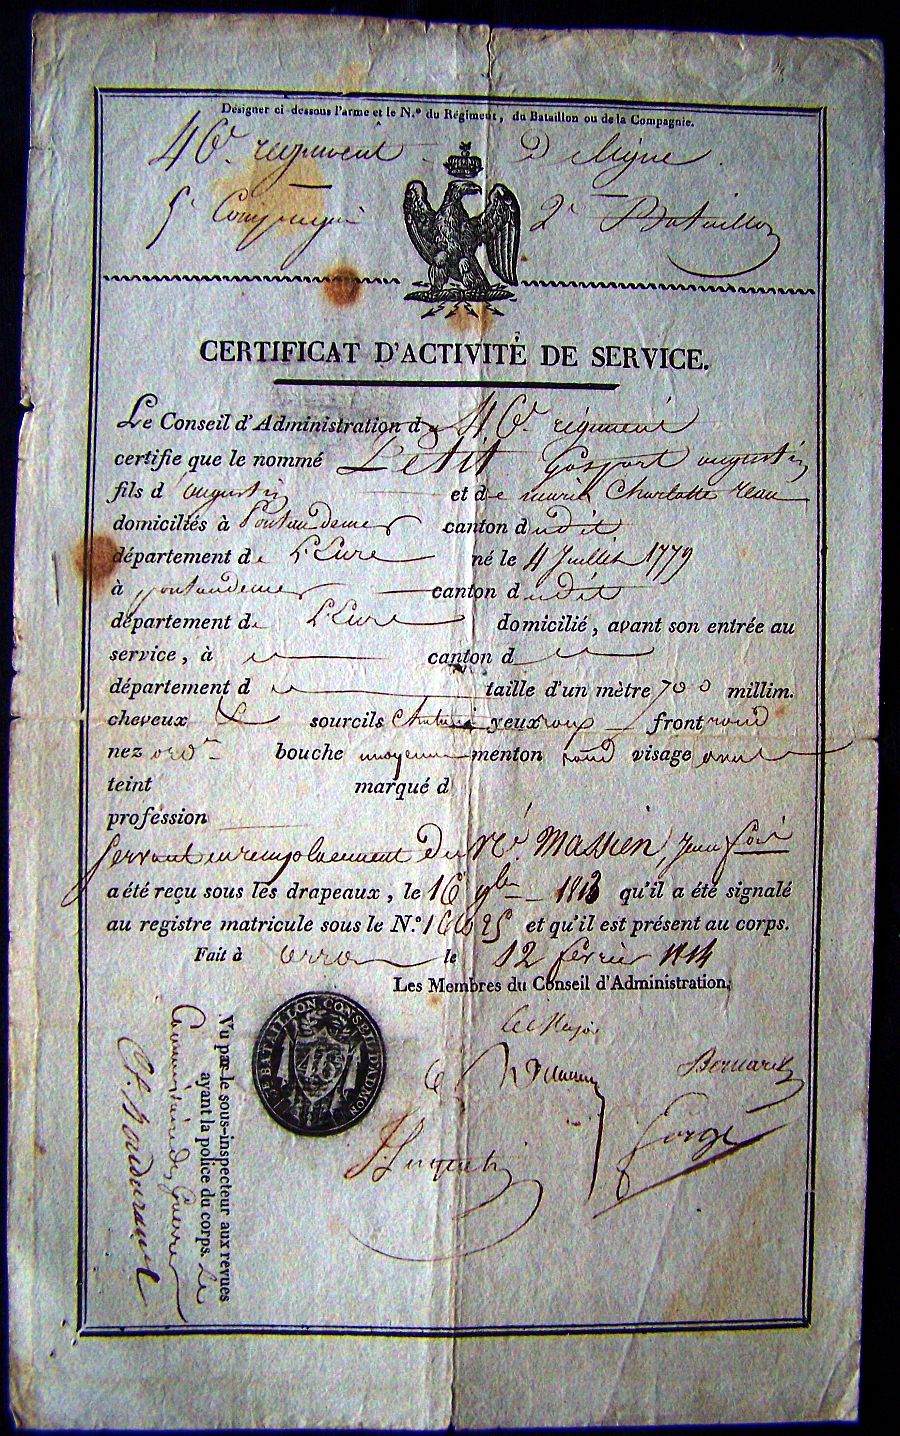 Désigner ci-dessous l'arme et le N.º du Régiment, du Bataillon ou de la Compagnie.
46e. regiment D ligne
5e Compagnie 2e Bataillon
CERTIFICAT D'ACTIVITÉ DE SERVICE.
Le Conseil d'Administration du 46e. régiment
certifie que le nommé Petit Gaspart augustin
fils d' augustin et de marie Charlotte
domiciliés à Pontaudemer canton dudit
département de L'Eure né le 4 Juillet 1779
à pontaudemer canton dudit
département de L'Eure domicilié, avant son entrée au
service, à canton d
département d taille d'un mètre 700 millim.
cheveux sourcils Chatain yeux roux front rond
nez ordre bouche moyenne menton rond visage oval
teint marqué d
profession
Servant en remplacement du Massien, Jean
a été reçu sous les drapeaux, le 16 9bre 1813 qu'il a été signalé
au registre matricule sous le N.º et qu'il est présent au corps.
Fait à arras le 12 fevrier 1814
Les Membres du Conseil d'Administration,
Le Major
Bernard
Gorge
BATAILLON CONSEIL D'ADMON
Vu par le sous-inspecteur aux revues
ayant la police du corps. Le
Commissaire des Guerres